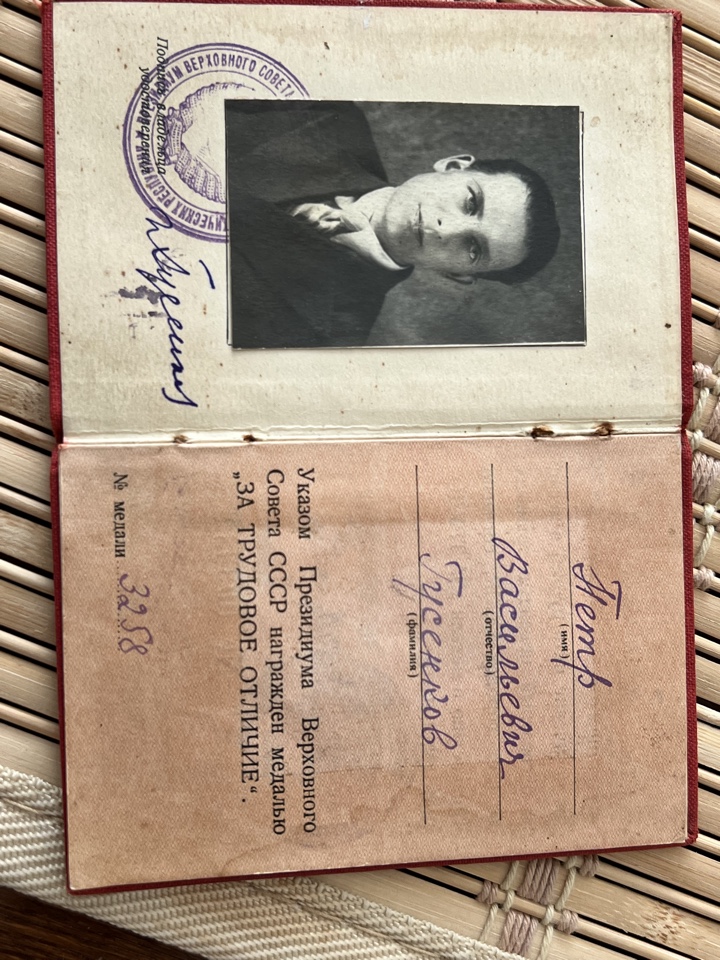 ИУМ ВЕРХОВНОГО СОВЕТА
ИЧЕСКИХ РЕСПУ
Подпись владельца
удостоверения
ПГусенков
Петр
(имя)
Васильевич
(отчество)
Гусенков
(фамилия)
Указом Президиума Верховного
Совета СССР награжден медалью
„ЗА ТРУДОВОЕ ОТЛИЧИЕ“.
№ медали 3258